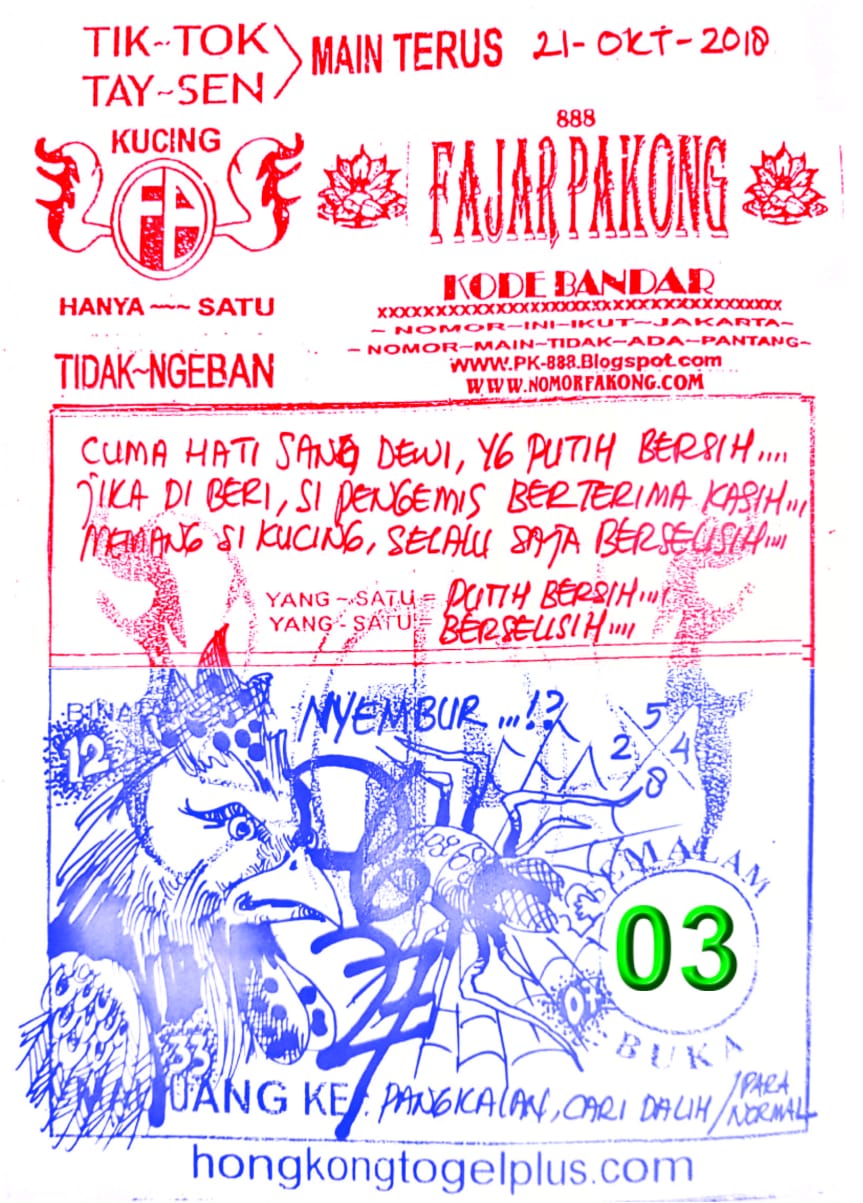 TIK~TOK
TAY~SEN
MAIN TERUS
21-OKT-2018
KUCING
HANYA ~~ SATU
TIDAK~NGEBAN
888
FAJAR PAKONG
KODE BANDAR
XXXXXXXXXXXXXXXXXXXXXXXXXXXXXXXXXXXXXX
~ NOMOR~INI~IKUT~JAKARTA~
~ NOMOR~MAIN~TIDAK~ADA~PANTANG~
WWW.PK-888.Blogspot.com
WWW.NOMORFAKONG.COM
CUMA HATI SANG DEWI, YG PUTIH BERSIH....
JIKA DI BERI, SI PENGEMIS BERTERIMA KASIH...
MEMANG SI KUCING, SELALU SAJA BERSELISIH....
YANG ~ SATU = PUTIH BERSIH....
YANG - SATU = BERSELISIH....
NYEMBUR...!?
5
2 4
8
12
SEMALAM
03
BUKA
33
JUANG KE: PANGKALAN, CARI DALIH/PARA NORMAL
hongkongtogelplus.com